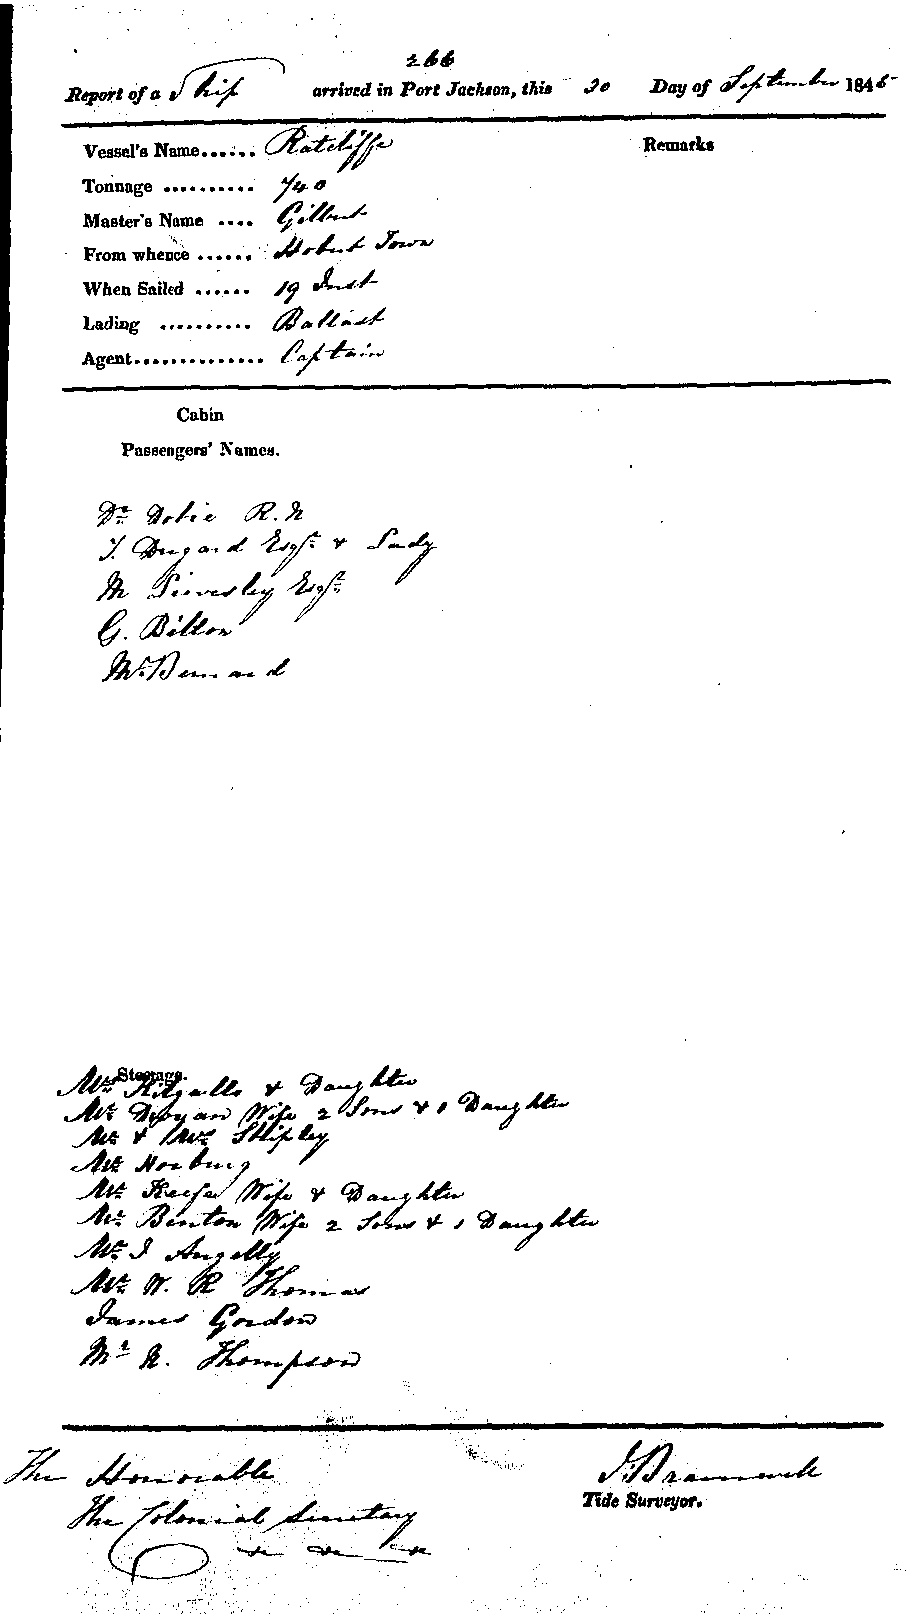 266
Report of a Ship arrived in Port Jackson, this 30 Day of September 1845
Vessel's Name...... Ratcliffe
Remarks
Tonnage .......... 740
Master's Name .... Gilbert
From whence ...... Hobart Town
When Sailed ...... 19 Inst
Lading .......... Ballast
Agent.............. Captain
Cabin
Passengers' Names.
Dr. Dobie R.N
T. Dugard Esqr. & Lady
M Esqr.
G. Bilton
Mr. Bernard
Steerage.
& Daughter
Mr. Wife 2 Sons & 1 Daughter
Mr. & Mrs Shipley
Mr. Norbury
Mr. Keefe Wife & Daughter
Mr. Benton Wife 2 Sons & 1 Daughter
Mr. J Angelly
Mr. W. R Thomas
James Gordon
Mr N. Thompson
The Honorable
The Colonial Secretary
J. Bramwell
Tide Surveyor.